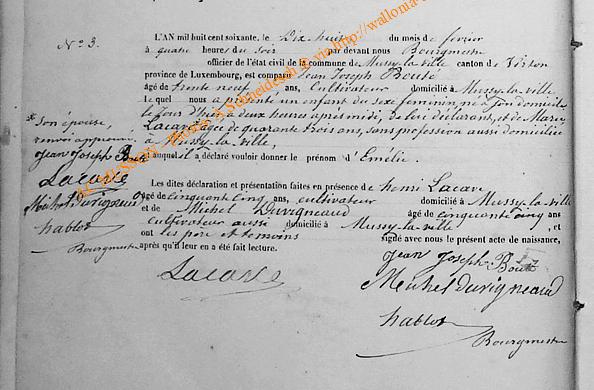 N° 3.
L'AN mil huit cent soixante, le Dix huit du mois de fevrier
à quatre heures du soir par devant nous Bourgmestre
officier de l'état civil de la commune de Mussy-la-ville canton de Virton
province de Luxembourg, est comparu Jean Joseph Bouté
âgé de trente neuf ans, Cultivateur domicilié à Mussy-la-ville
lequel nous a présenté un enfant du sexe feminin, né à son domicile
le jour d'hier à deux heures après midi, de lui déclarant, et de Marie
Lacave agée de quarante trois ans, sans profession aussi domiciliée
à Mussy-la-ville,
et auquel il a déclaré vouloir donner le prénom d'Emélie.
Son épouse,
renvoi approuvé
Jean Joseph
Lacave
Michel Duvigneaud
hablot
Bourgmestre
Les dites déclaration et présentation faites en présence de henri Lacave
âgé de cinquante cinq ans, cultivateur domicilié à Mussy-la-ville
et de Michel Duvigneaud âgé de cinquante cinq ans
cultivateur aussi domicilié à Mussy-la-ville, et
ont les père et témoins signé avec nous le présent acte de naissance,
après qu'il leur en a été fait lecture.
Jean Joseph Bouté
Lacave
Michel Duvigneaud
hablot
Bourgmestre